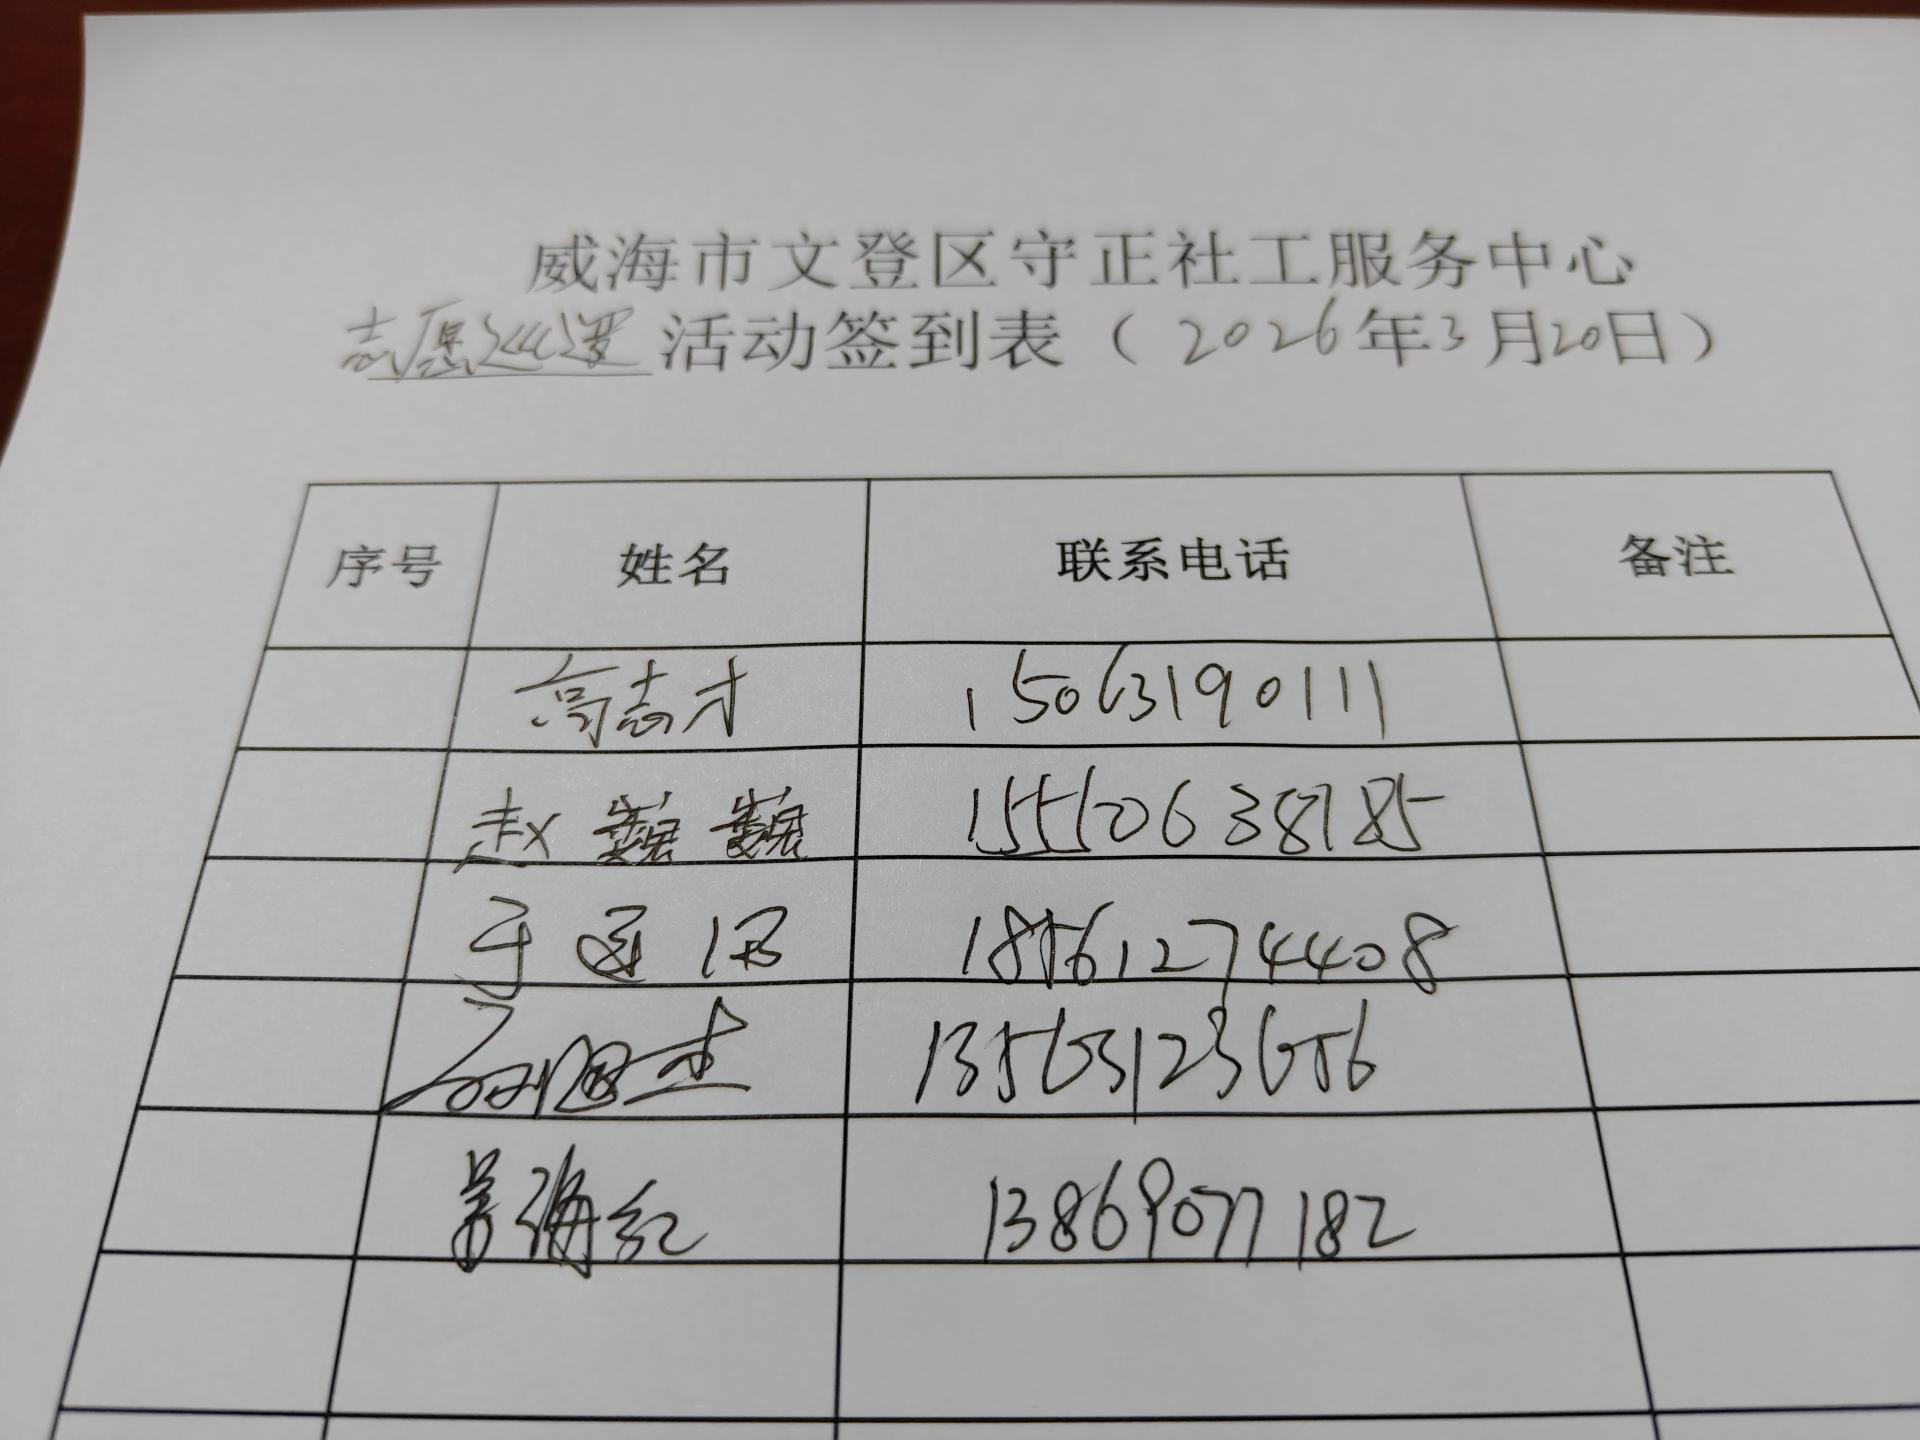 威海市文登区守正社工服务中心
志愿巡逻活动签到表（2026年3月20日）
序号 姓名 联系电话 备注
高志才 15063190111
赵巍巍 15550638785
于 18561274408
杰 13563123656
海红 13869077182